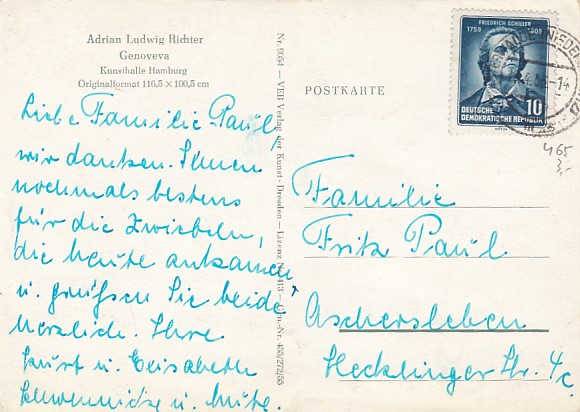 Adrian Ludwig Richter
Genoveva
Kunsthalle Hamburg
Originalformat 116,5 × 100,5 cm
Liebe Familie Paul,
wir danken Ihnen
nochmals bestens
für die Zwiebeln,
die heute ankamen
u. grüßen Sie beide
herzlich. Ihre
Kurt u. Elisabeth
u.
VEB Verlag der Kunst · Dresden
POSTKARTE
FRIEDRICH SCHILLER
1759 1805
DEUTSCHE
DEMOKRATISCHE REPUBLIK
10
465
3,-
Familie
Fritz Paul
Aschersleben
Hecklinger Str. 4c.